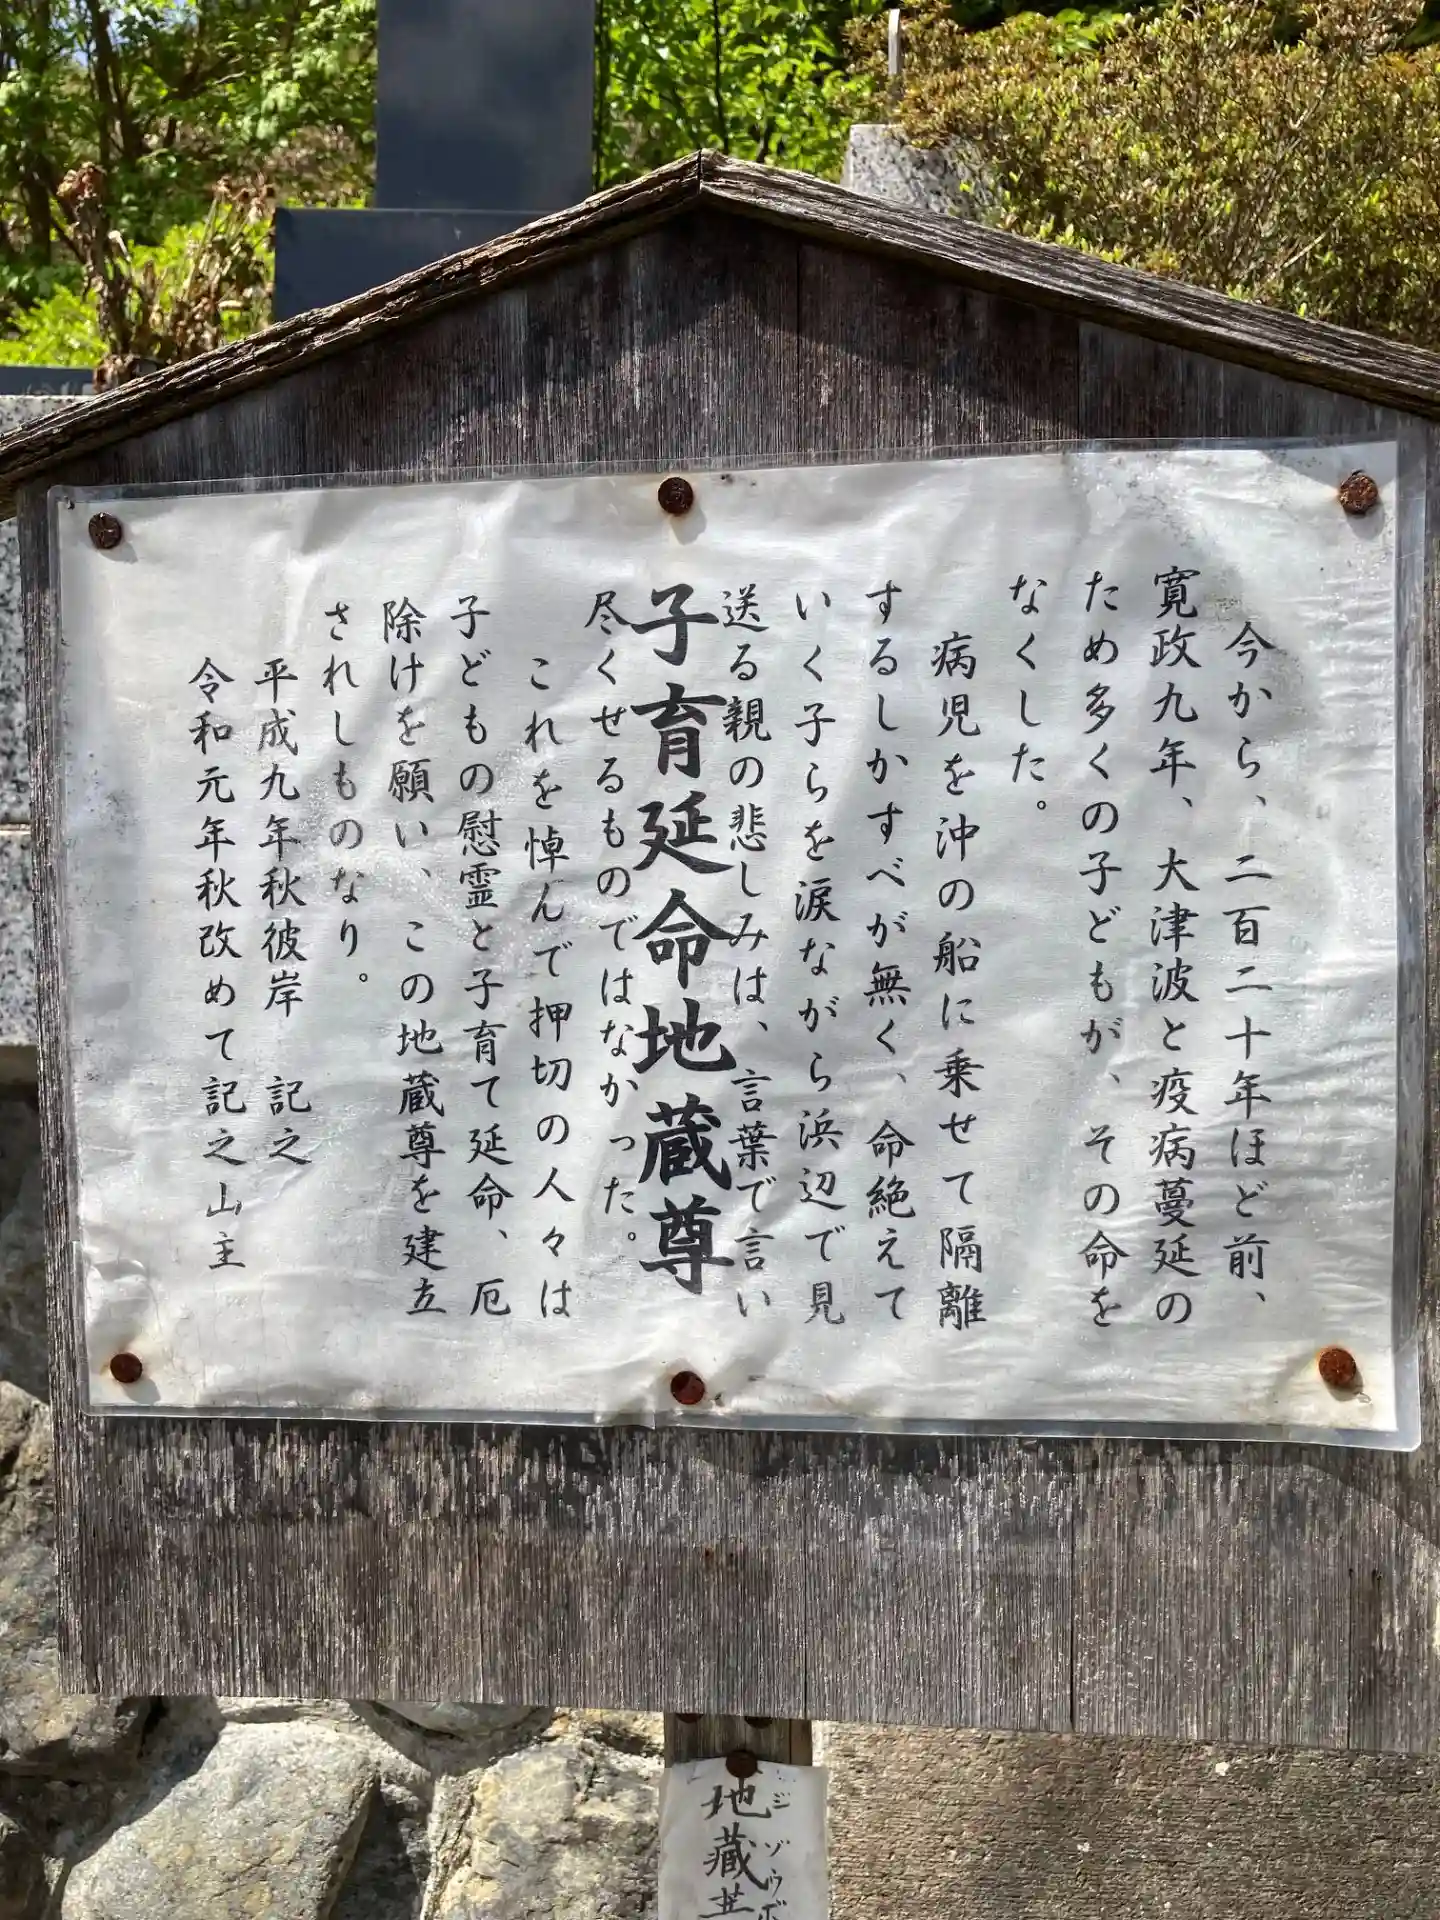 今から、二百二十年ほど前、
寛政九年、大津波と疫病蔓延の
ため多くの子どもが、その命を
なくした。
病児を沖の船に乗せて隔離
するしかすべが無く、命絶えて
いく子らを涙ながら浜辺で見
送る親の悲しみは、言葉で言い
子育延命地蔵尊
尽くせるものではなかった。
これを悼んで押切の人々は
子どもの慰霊と子育て延命、厄
除けを願い、この地蔵尊を建立
されしものなり。
平成九年秋彼岸 記之
令和元年秋改めて記之山主
地蔵
ジゾウボ